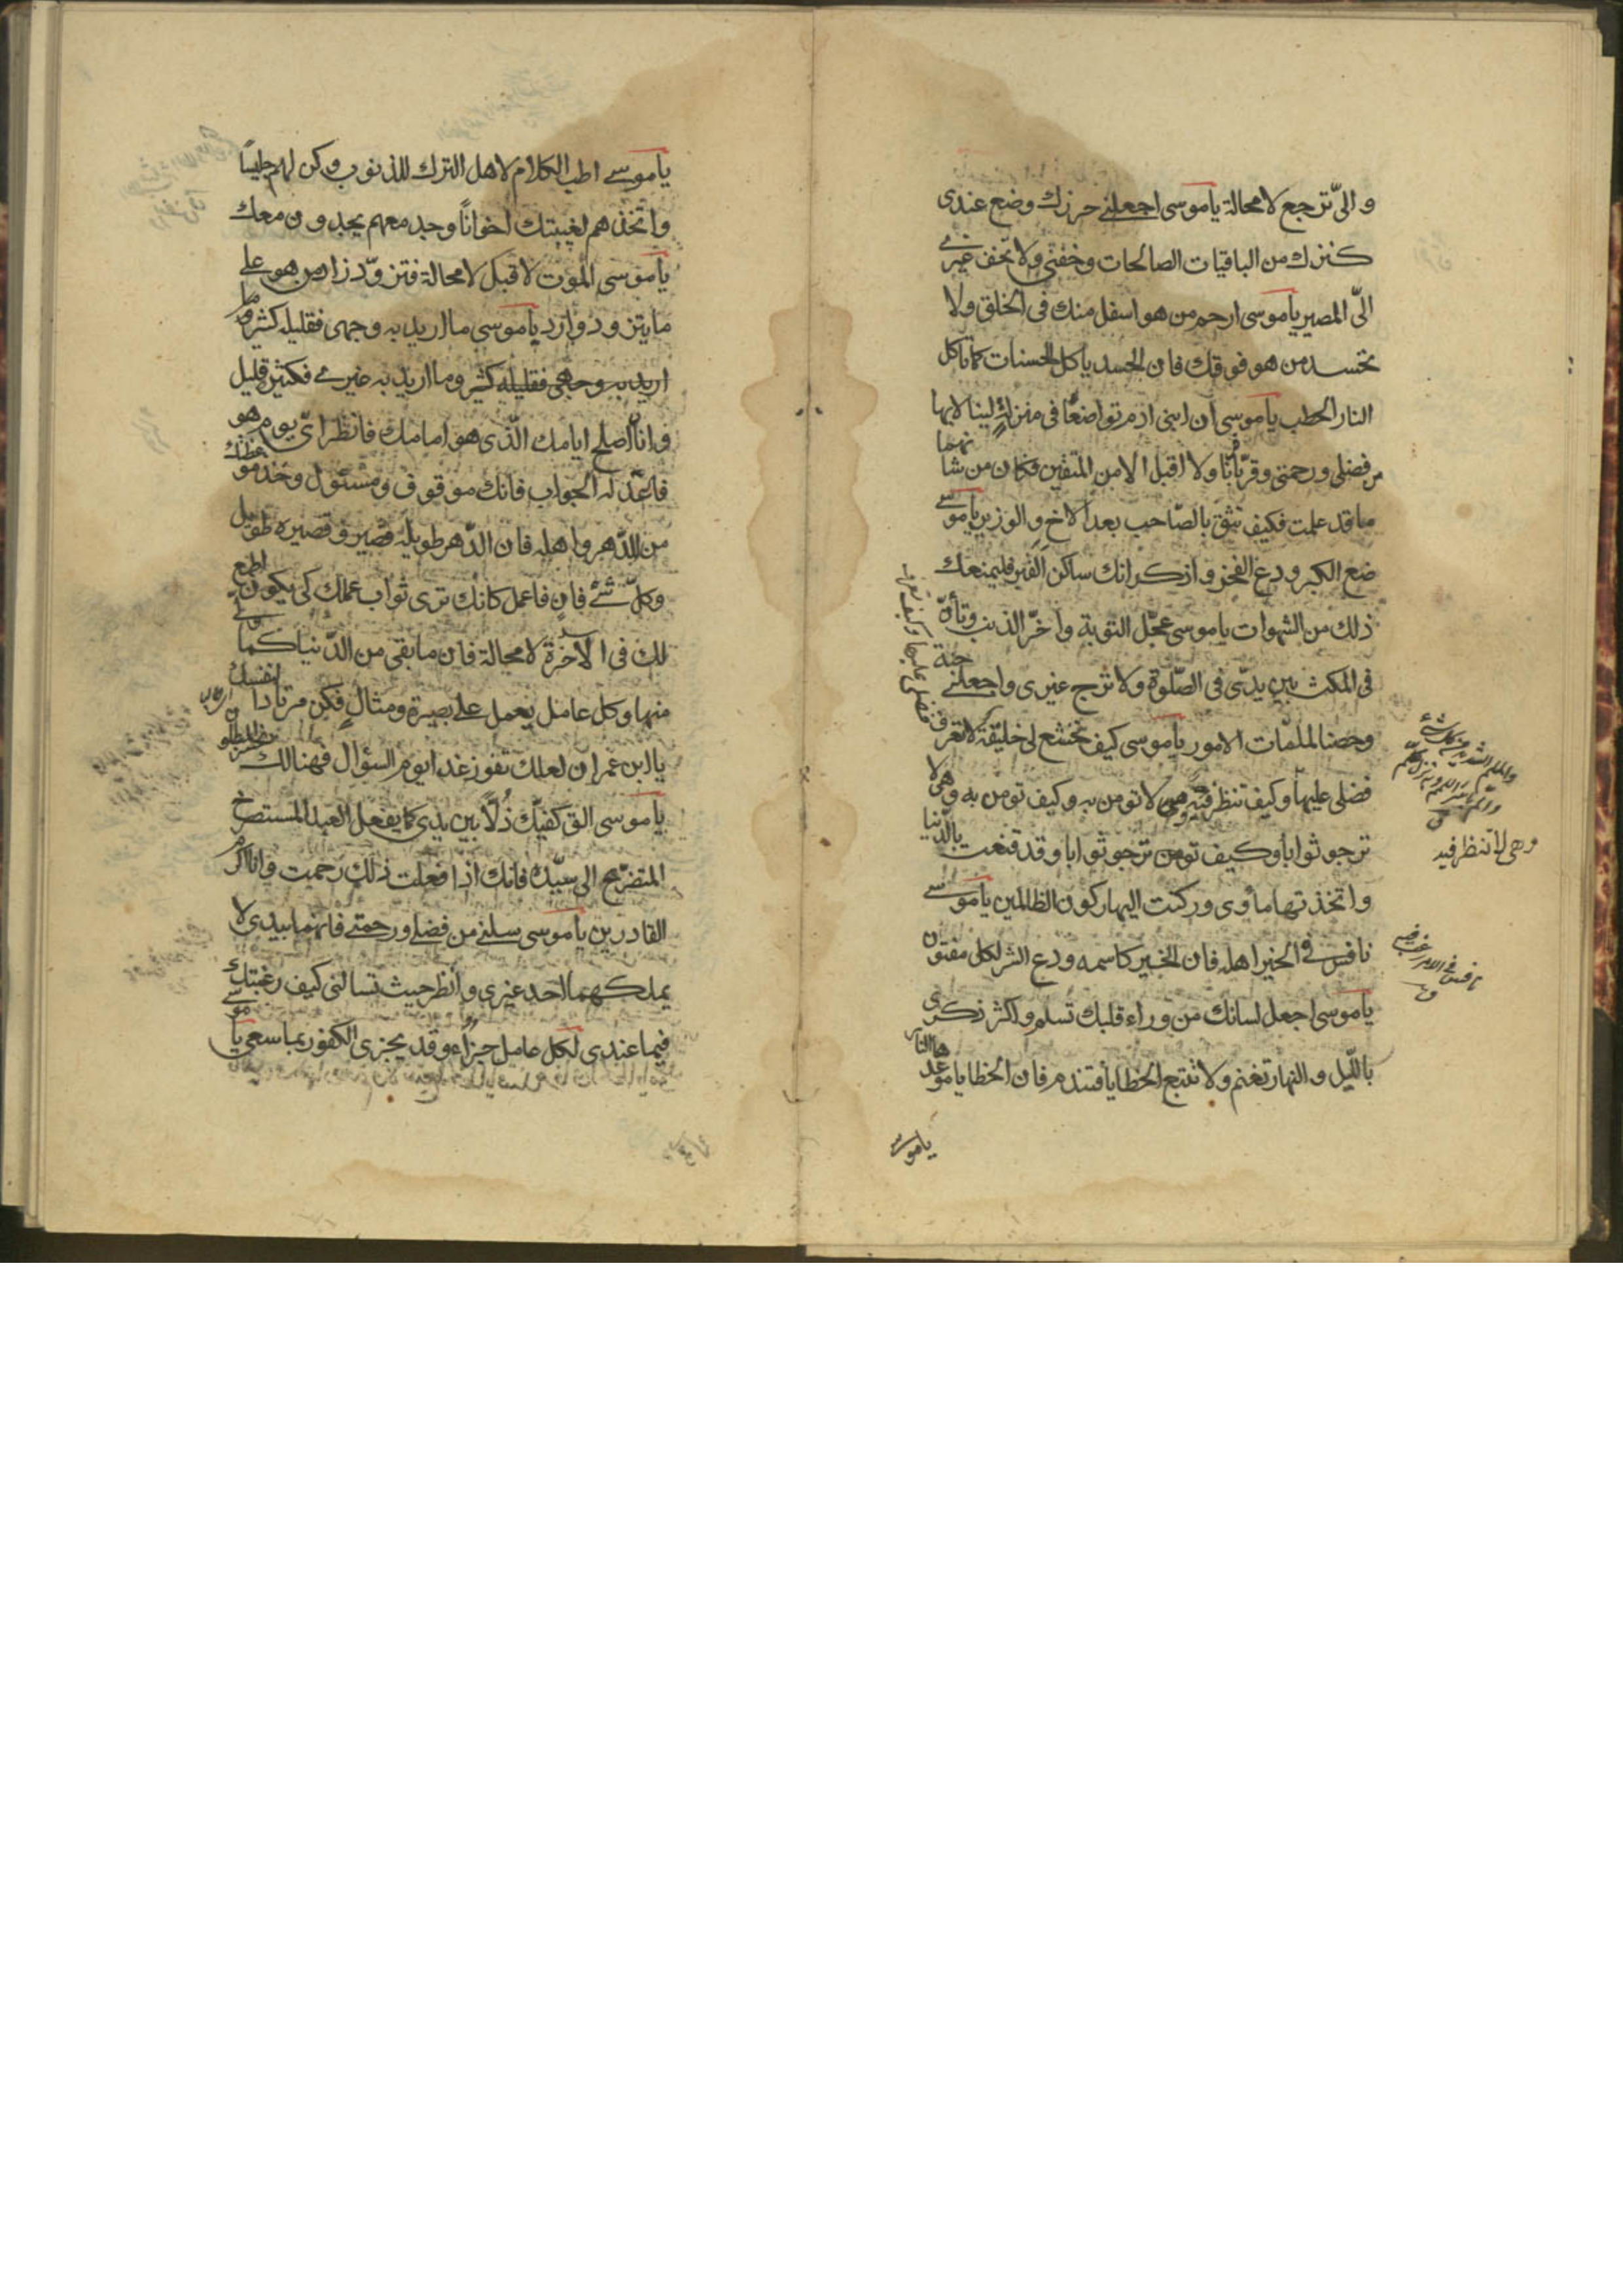 و الىّ ترجع لا محالة ياموسى اجعلنے حرزك وضع عندى
كنزك من الباقيات الصالحات وخفنى ولا تخف غيرے
الىّ المصير ياموسى ارحم من هو اسفل منك فى الخلق ولا
تحسد من هو فوقك فان الحسد ياكل الحسنات كما تاكل
النار الحطب ياموسى ان ابنى ادم تواضعا فى منزلة لينالا بها
من فضلى ورحمتى وقربا قربانا ولا اقبل الا من المتقين فكان من شانهما
ما قد علمت فكيف تثق بالصّاحب بعد الاخ و الوزير ياموسے
ضع الكبر ودع الفخر و اذكر انك ساكن القبر فليمنعك
ذلك من الشهوات ياموسى عجّل التوبة واخّر الذنب وتأنّ
فى المكث بين يدىّ فى الصّلوة ولا ترج غيرى واجعلنے جنة
وحصنا لملمّات الامور ياموسى كيف تخشع لى خليقة لا تعرف
فضلى عليها وكيف تعرف
فضلى عليها وكيف تنظر فيه وهى لا تومن به وكيف تومن به وهى لا
ترجو ثوابا وكيف ترجو ثوابا وقد قنعت بالدّنيا
واتخذتها مأوى وركنت اليها ركون الظالمين ياموسے
نافس فى الخير اهله فان الخير كاسمه ودع الشر لكل مفتون
ياموسى اجعل لسانك من وراء قلبك تسلم واكثر ذكرى
بالليل و النهار تغنم ولا تتبع الخطايا فتندم فان الخطايا موعدها النار
ياموسے
وهى لا تنظر فيه
ياموسے اطب الكلام لاهل الترك للذنوب وكن لهم جليسًا
واتخذهم لغيبتك اخوانًا وجد معهم يجدون معك
ياموسى الموت لاقيك لا محالة فتزوّد زاد من هو على
ما يتزود وارد ياموسى ما اريد به وجهى فقليله كثير وما
اريد به وجهى فقليله كثير وما اريد به غيرے فكثيره قليل
وانّ اصلح ايامك الّذى هو امامك فانظر اىّ يوم هو
فاعدّ له الجواب فانك موقوف ومسئول وخذ موعظتك
من الدّهر واهله فان الدّهر طويله قصير وقصيره طويل
وكلّ شئ فانٍ فاعمل كانك ترى ثواب عملك كى يكون اطمع
لك فى الآخرة لا محالة فان ما بقى من الدّنيا كما ولّے
منها وكل عامل يعمل على بصيرة ومثال فكن مرتادا لنفسك
يا ابن عمران لعلك تفوز غدا يوم السؤال فهنالك يخسر المبطلون
ياموسى الق كفيّك ذُلاً بين يدى كما يفعل العبد المستصرخ
المتضرّع الى سيّده فانك اذا فعلت ذلك رحمت وانا اكرم
القادرين ياموسى سلنے من فضلے ورحمتے فانهما بيدى لا
يملكهما احد غيرى وانظر حيث تسالنى كيف رغبتك
فيما عندى لكل عامل جزاء وقد يجزى الكفور بما سعى ياموسے